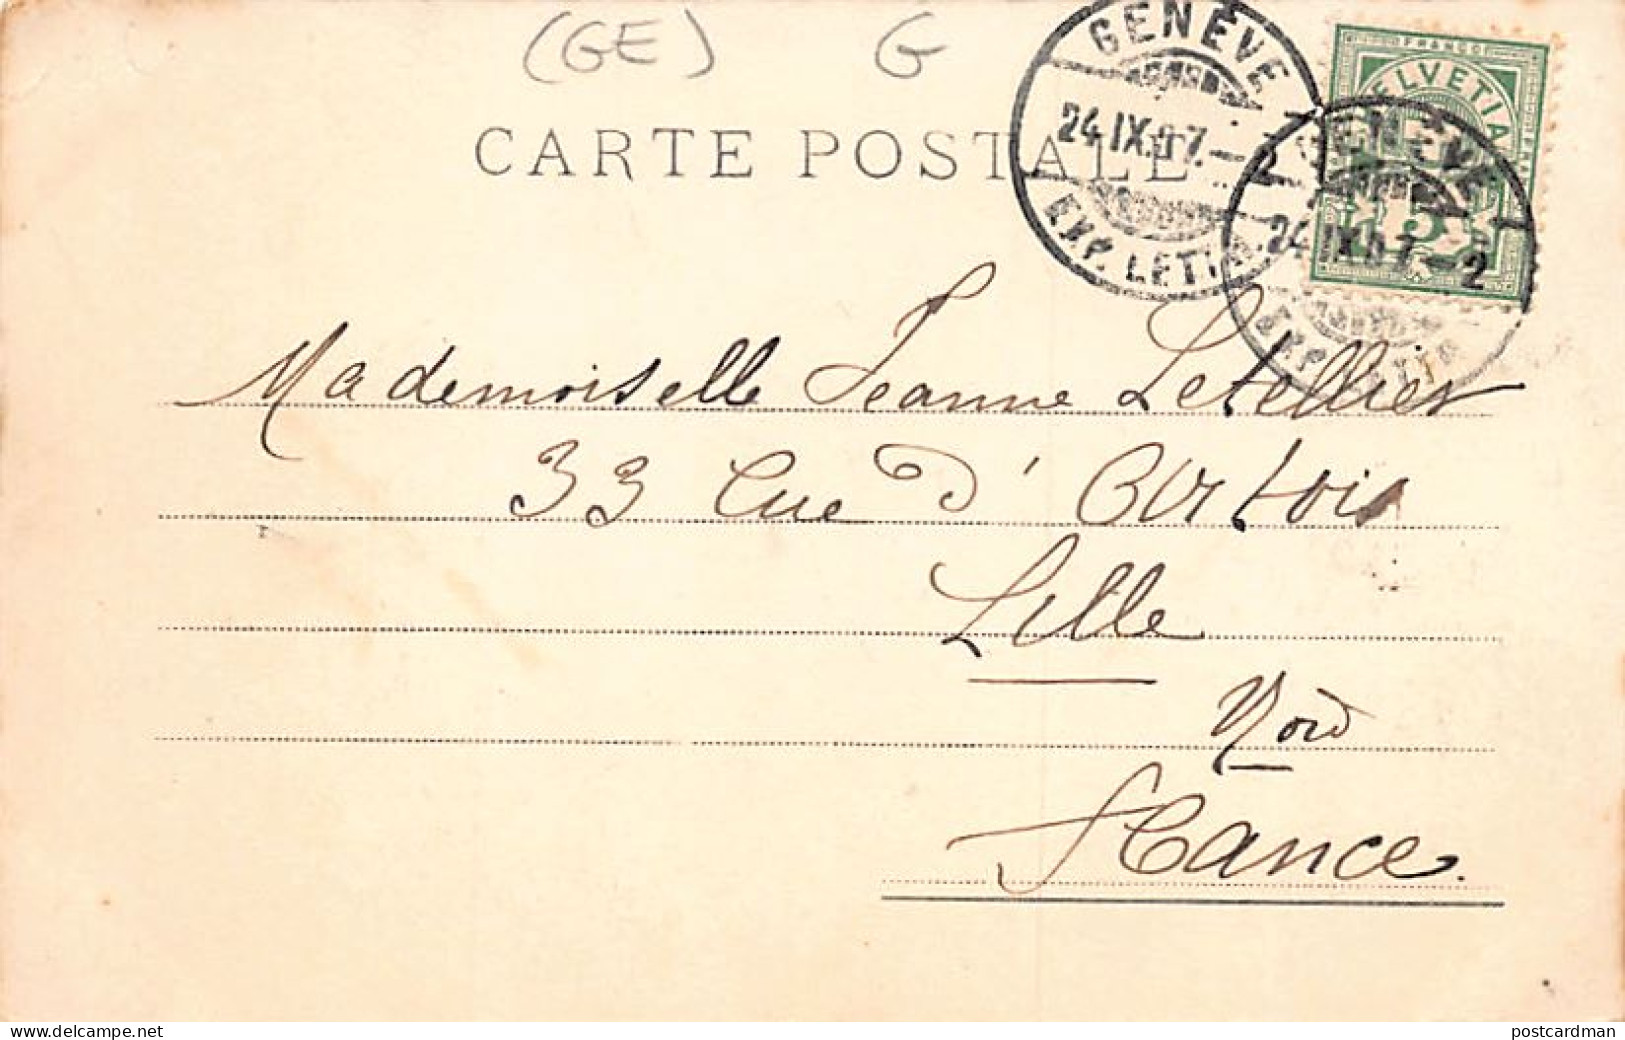 (GE) G
CARTE POSTALE
GENÈVE
24.IX.07.—2
EXP. LETTR.
FRANCO
HELVETIA
5
GENÈVE
24.IX.07—2
EXP. LETTR.
Mademoiselle Jeanne Letellier
33 Rue d'Artois
Lille
Nord
France.
www.delcampe.net
postcardman